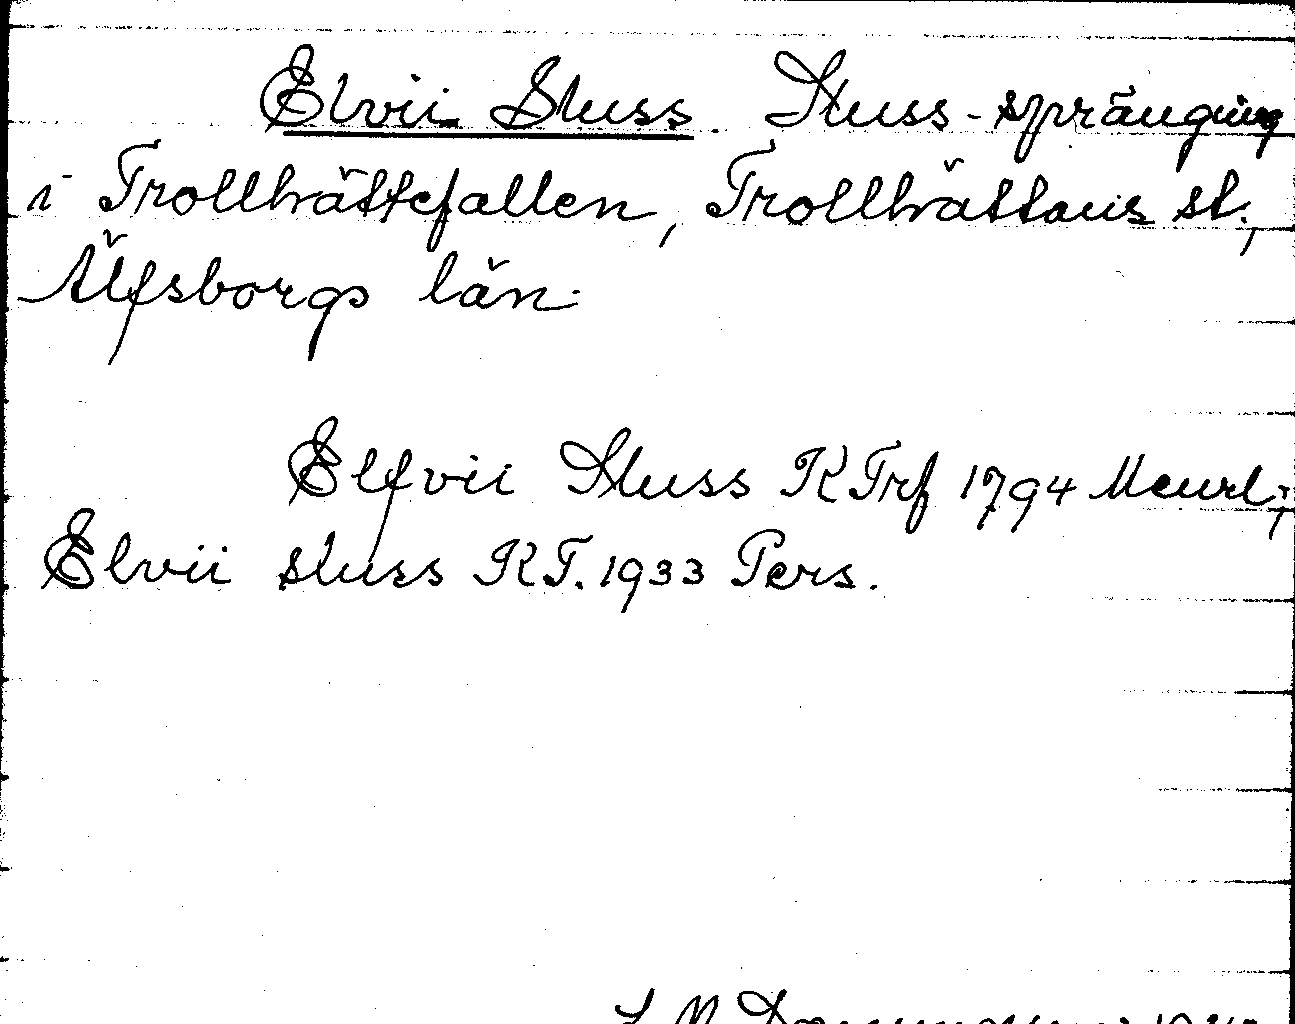 Elvii Sluss. Sluss-sprängning
i Trollhättefallen, Trollhättans st.,
Älfsborgs län.
Elfvii Sluss KTrf 1794 Meurl;
Elvii sluss KT. 1933 Pers.